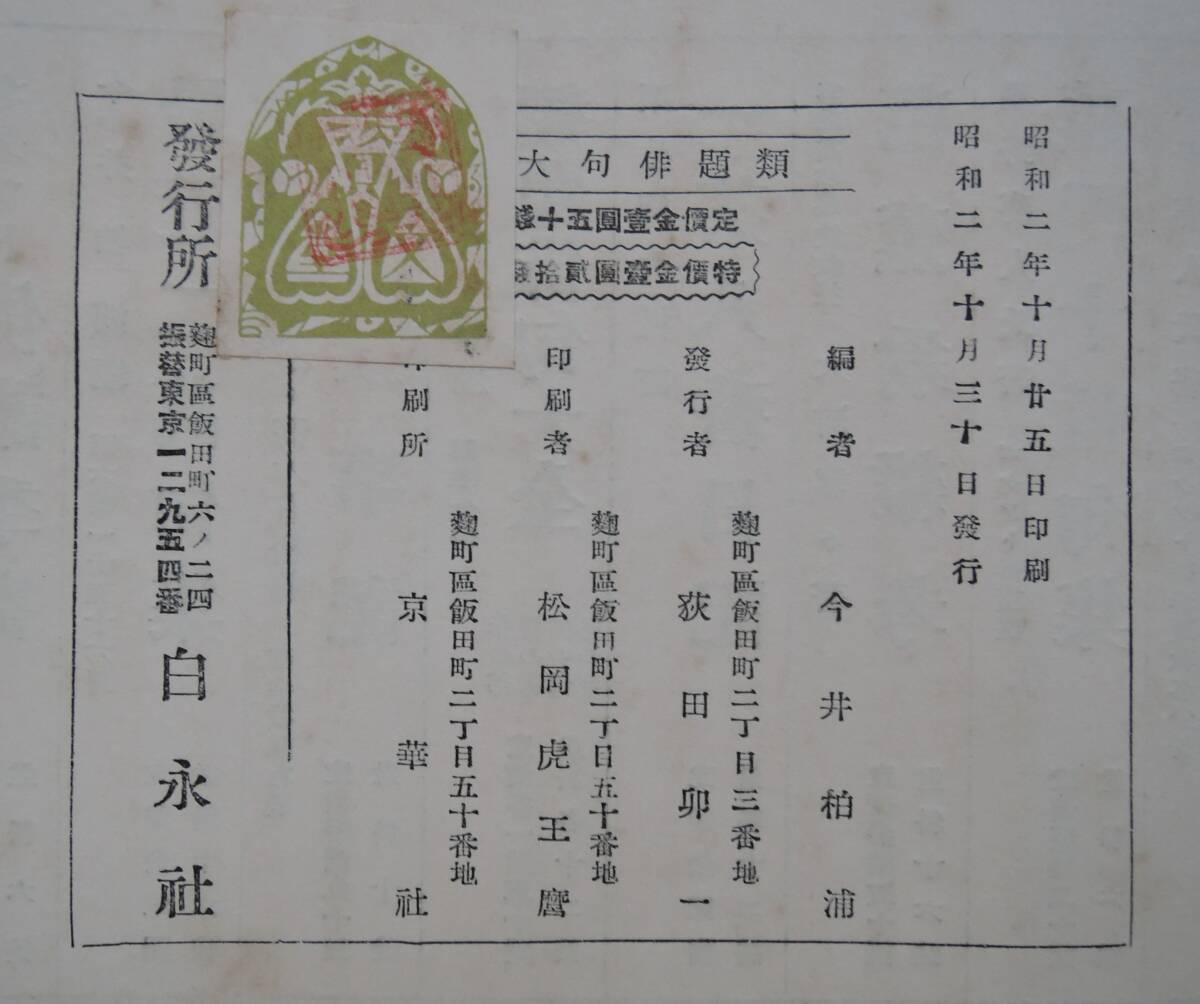 昭和二年十月廿五日印刷
昭和二年十月三十日發行
類題俳句大
定價金壹圓五十錢
特價金壹圓貳拾錢
編者 今井柏浦
發行者 麴町區飯田町二丁目三番地 荻田卯一
印刷者 麴町區飯田町二丁目五十番地 松岡虎王麿
印刷所 麴町區飯田町二丁目五十番地 京華社
發行所 麴町區飯田町六ノ二四
振替東京一二九五四番
白永社